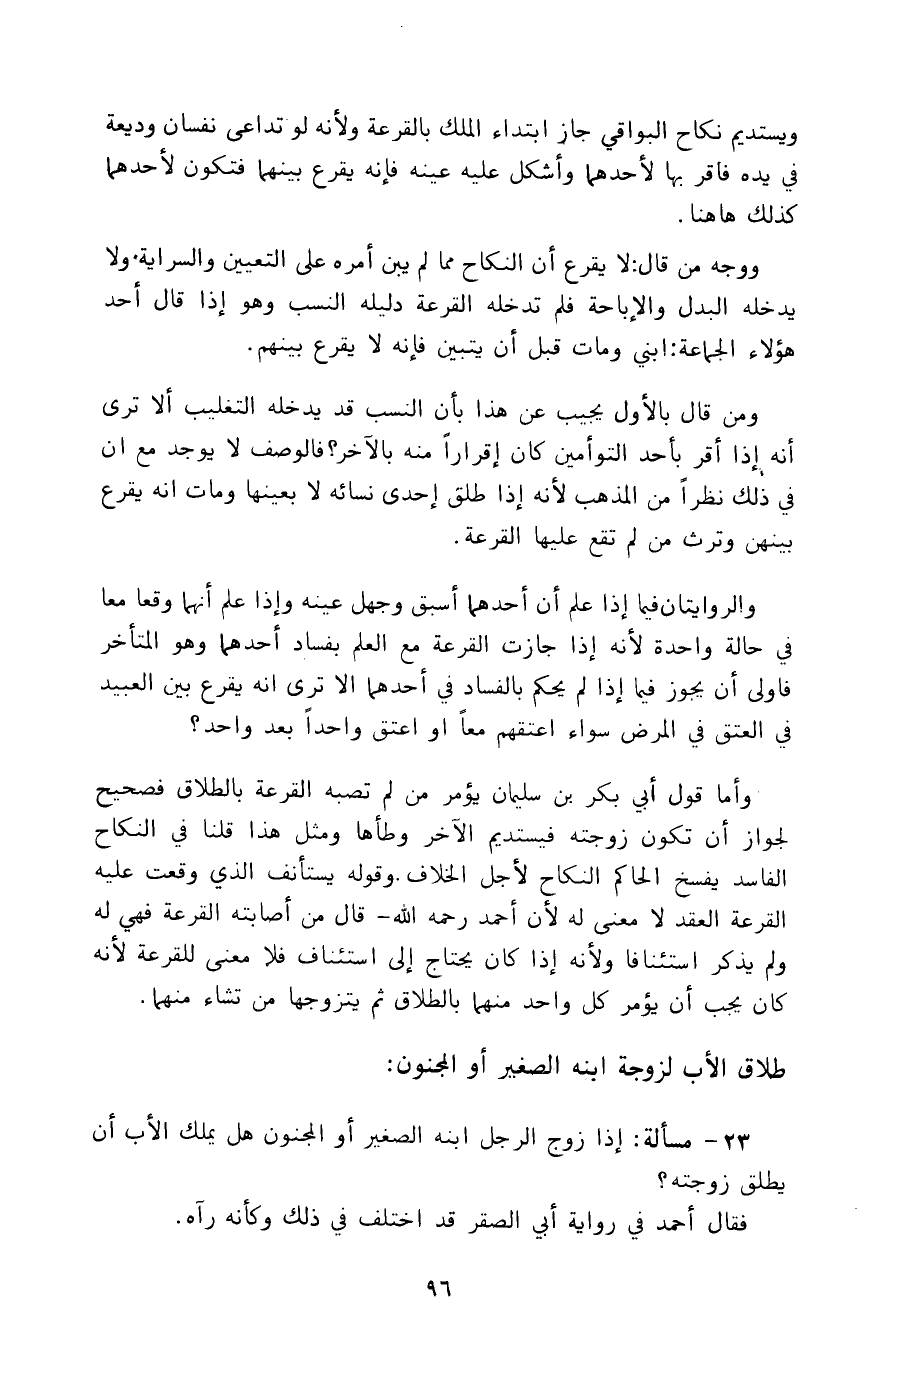 ويستديم نكاح البواقي جاز ابتداء الملك بالقرعة ولأنه لو تداعى نفسان وديعة
في يده فاقر بها لأحدهما وأشكل عليه عينه فإنه يقرع بينهما فتكون لأحدهما
كذلك هاهنا .
ووجه من قال:لا يقرع أن النكاح مما لم يبن أمره على التعيين والسراية.ولا
يدخله البدل والإباحة فلم تدخله القرعة دليله النسب وهو إذا قال أحد
هؤلاء الجماعة:ابني ومات قبل أن يتبين فإنه لا يقرع بينهم.
ومن قال بالأول يجيب عن هذا بأن النسب قد يدخله التغليب ألا ترى
أنه إذا أقر بأحد التوأمين كان إقراراً منه بالآخر؟فالوصف لا يوجد مع ان
في ذلك نظراً من المذهب لأنه إذا طلق إحدى نسائه لا بعينها ومات انه يقرع
بينهن وترث من لم تقع عليها القرعة .
والروايتان فيما إذا علم أن أحدهما أسبق وجهل عينه وإذا علم أنهما وقعا معا
في حالة واحدة لأنه إذا جازت القرعة مع العلم بفساد أحدهما وهو المتأخر
فاولى أن يجوز فيما إذا لم يحكم بالفساد في أحدهما الا ترى انه يقرع بين العبيد
في العتق في المرض سواء اعتقهم معاً او اعتق واحداً بعد واحد؟
وأما قول أبي بكر بن سليمان يؤمر من لم تصبه القرعة بالطلاق فصحيح
لجواز أن تكون زوجته فيستديم الآخر وطأها ومثل هذا قلنا في النكاح
الفاسد يفسخ الحاكم النكاح لأجل الخلاف.وقوله يستأنف الذي وقعت عليه
القرعة العقد لا معنى له لأن أحمد رحمه الله- قال من أصابته القرعة فهي له
ولم يذكر استئنافا ولأنه إذا كان يحتاج إلى استئناف فلا معنى للقرعة لأنه
كان يجب أن يؤمر كل واحد منهما بالطلاق ثم يتزوجها من تشاء منهما.
طلاق الأب لزوجة ابنه الصغير أو المجنون:
٢٣ - مسألة: إذا زوج الرجل ابنه الصغير أو المجنون هل يملك الأب أن
يطلق زوجته؟
فقال أحمد في رواية أبي الصقر قد اختلف في ذلك وكأنه رآه.
٩٦